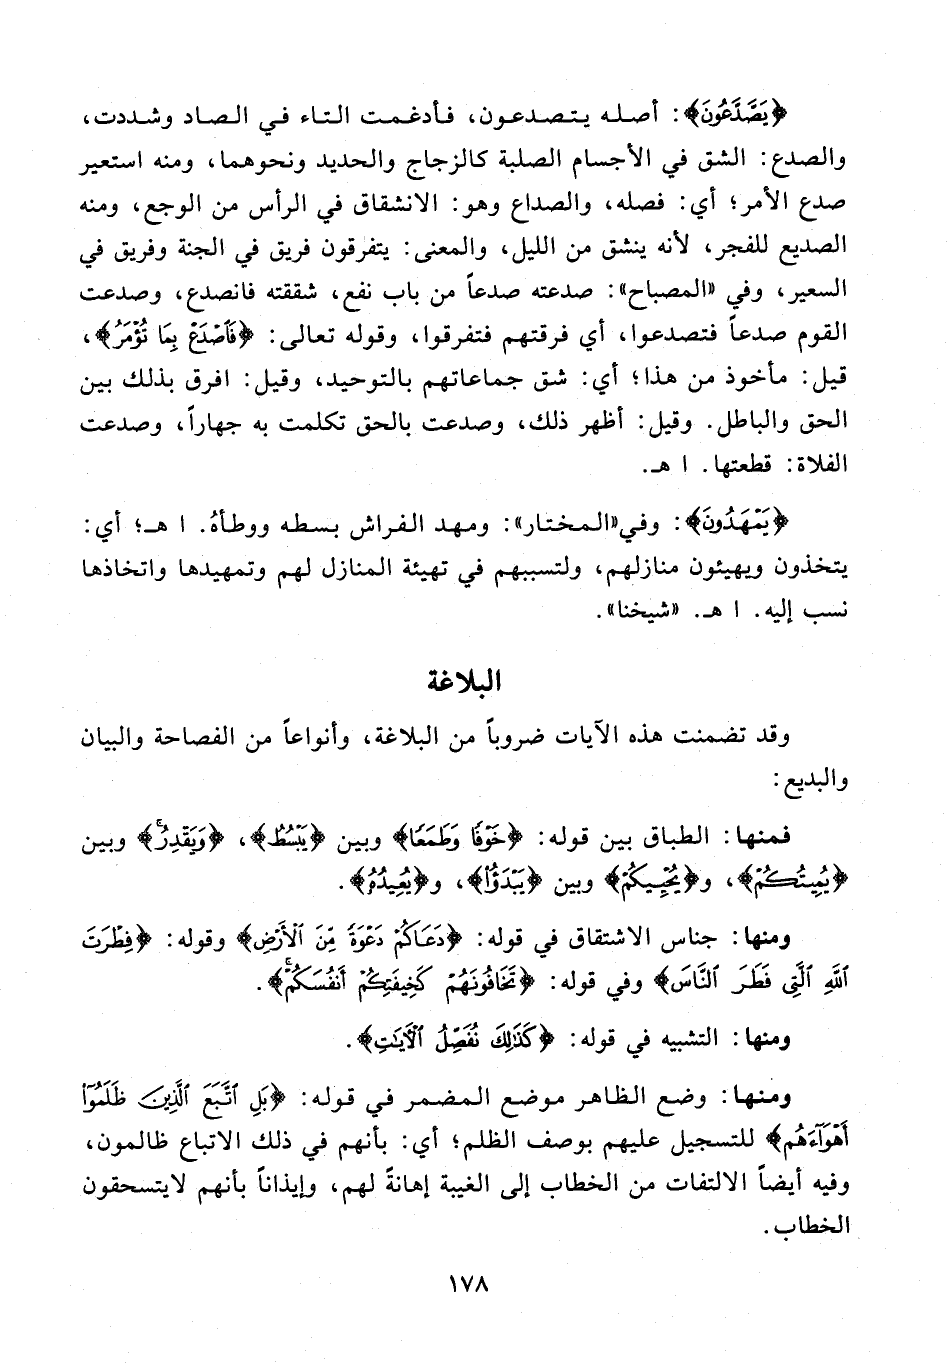 ﴿يَصَّدَّعُونَ﴾: أصله يتصدعون، فأدغمت التاء في الصاد وشددت،
والصدع: الشق في الأجسام الصلبة كالزجاج والحديد ونحوهما، ومنه استعير
صدع الأمر؛ أي: فصله، والصداع وهو: الانشقاق في الرأس من الوجع، ومنه
الصديع للفجر، لأنه ينشق من الليل، والمعنى: يتفرقون فريق في الجنة وفريق في
السعير، وفي «المصباح»: صدعته صدعاً من باب نفع، شققته فانصدع، وصدعت
القوم صدعاً فتصدعوا، أي فرقتهم فتفرقوا، وقوله تعالى: ﴿فَٱصْدَعْ بِمَا تُؤْمَرُ﴾،
قيل: مأخوذ من هذا؛ أي: شق جماعاتهم بالتوحيد، وقيل: افرق بذلك بين
الحق والباطل. وقيل: أظهر ذلك، وصدعت بالحق تكلمت به جهاراً، وصدعت
الفلاة: قطعتها. ا هـ.
﴿يَمْهَدُونَ﴾: وفي «المختار»: ومهد الفراش بسطه ووطأهُ. ا هـ؛ أي:
يتخذون ويهيئون منازلهم، ولتسببهم في تهيئة المنازل لهم وتمهيدها واتخاذها
نسب إليه. ا هـ. «شيخنا».
البلاغة
وقد تضمنت هذه الآيات ضروباً من البلاغة، وأنواعاً من الفصاحة والبيان
والبديع:
فمنها: الطباق بين قوله: ﴿خَوْفًا وَطَمَعًا﴾ وبين ﴿يَبْسُطُ﴾، ﴿وَيَقْدِرُ ۚ﴾ وبين
﴿يُمِيتُكُمْ﴾، و﴿يُحْيِيكُمْ﴾ وبين ﴿يَبْدَؤُاْ﴾، و﴿يُعِيدُهُ﴾.
ومنها: جناس الاشتقاق في قوله: ﴿دَعَاكُمْ دَعْوَةً مِّنَ ٱلْأَرْضِ﴾ وقوله: ﴿فِطْرَتَ
ٱللَّهِ ٱلَّتِى فَطَرَ ٱلنَّاسَ﴾ وفي قوله: ﴿تَخَافُونَهُمْ كَخِيفَتِكُمْ أَنفُسَكُمْ ۚ﴾.
ومنها: التشبيه في قوله: ﴿كَذَٰلِكَ نُفَصِّلُ ٱلْآيَٰتِ﴾.
ومنها: وضع الظاهر موضع المضمر في قوله: ﴿بَلِ ٱتَّبَعَ ٱلَّذِينَ ظَلَمُوٓاْ
أَهْوَآءَهُم﴾ للتسجيل عليهم بوصف الظلم؛ أي: بأنهم في ذلك الاتباع ظالمون،
وفيه أيضاً الالتفات من الخطاب إلى الغيبة إهانةً لهم، وإيذاناً بأنهم لايتسحقون
الخطاب.
١٧٨